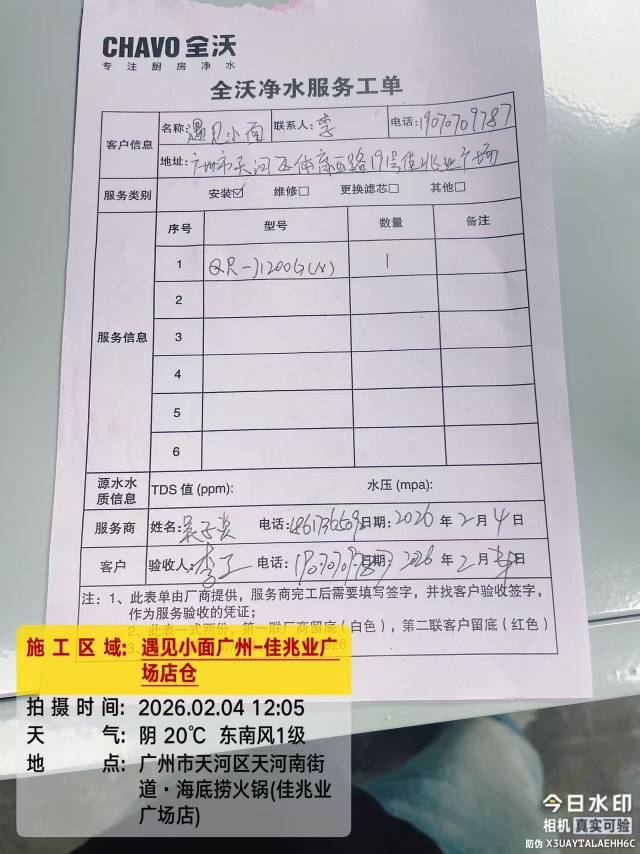 CHAVO 全沃
专注厨房净水
全沃净水服务工单
客户信息
名称: 遇见小面 联系人: 李 电话: 19070709787
地址: 广州市天河区体育西路191号佳兆业广场
服务类别 安装☑ 维修□ 更换滤芯□ 其他□
服务信息
序号 型号 数量 备注
1 QR-J1200G(N) 1
2
3
4
5
6
源水水质信息 TDS 值 (ppm): 水压 (mpa):
服务商 姓名: 电话: 日期: 2026 年 2 月 4 日
客户 验收人: 李 电话: 日期: 2026 年 2 月 日
注: 1、此表单由厂商提供，服务商完工后需要填写签字，并找客户验收签字，
作为服务验收的凭证；
2、此表一式两份，第一联厂商留底（白色），第二联客户留底（红色）
施工区域: 遇见小面广州-佳兆业广
场店仓
拍摄时间: 2026.02.04 12:05
天气: 阴 20℃ 东南风1级
地点: 广州市天河区天河南街
道·海底捞火锅(佳兆业
广场店)
今日水印
相机 真实可验
防伪 X3UAYTALAEHH6C